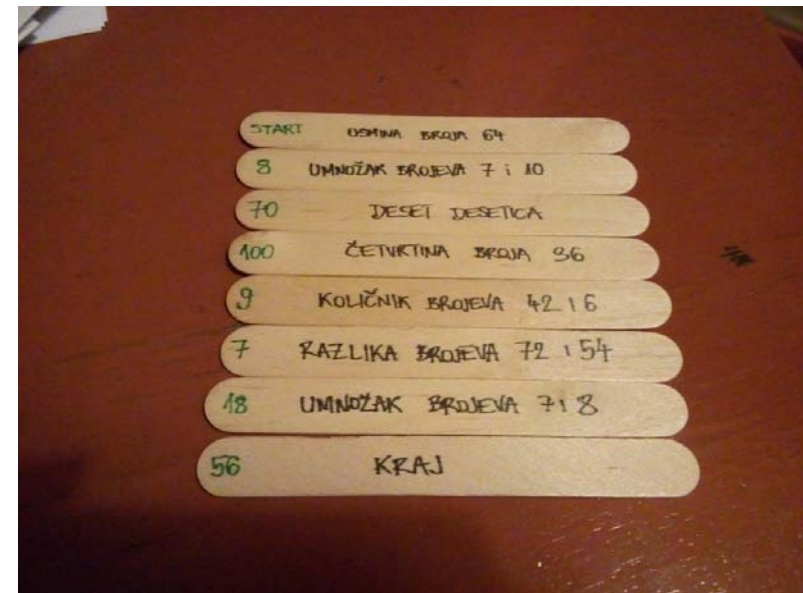 START OSMINA BROJA 64
8 UMNOŽAK BROJEVA 7 i 10
70 DESET DESETICA
100 ČETVRTINA BROJA 36
9 KOLIČNIK BROJEVA 42 i 6
7 RAZLIKA BROJEVA 72 i 54
18 UMNOŽAK BROJEVA 7 i 8
56 KRAJ